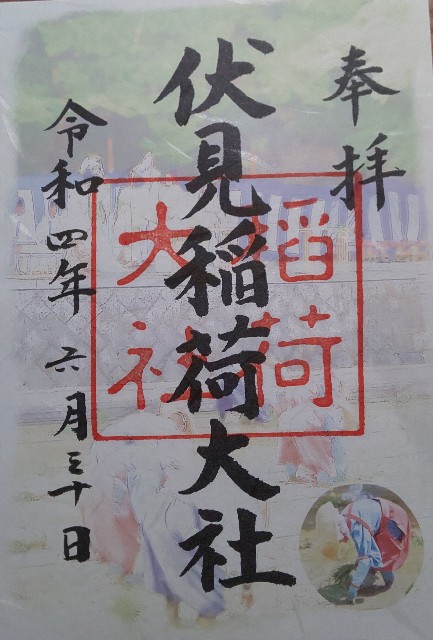 奉拝
伏見稲荷大社
令和四年六月三十日
稲荷
大社